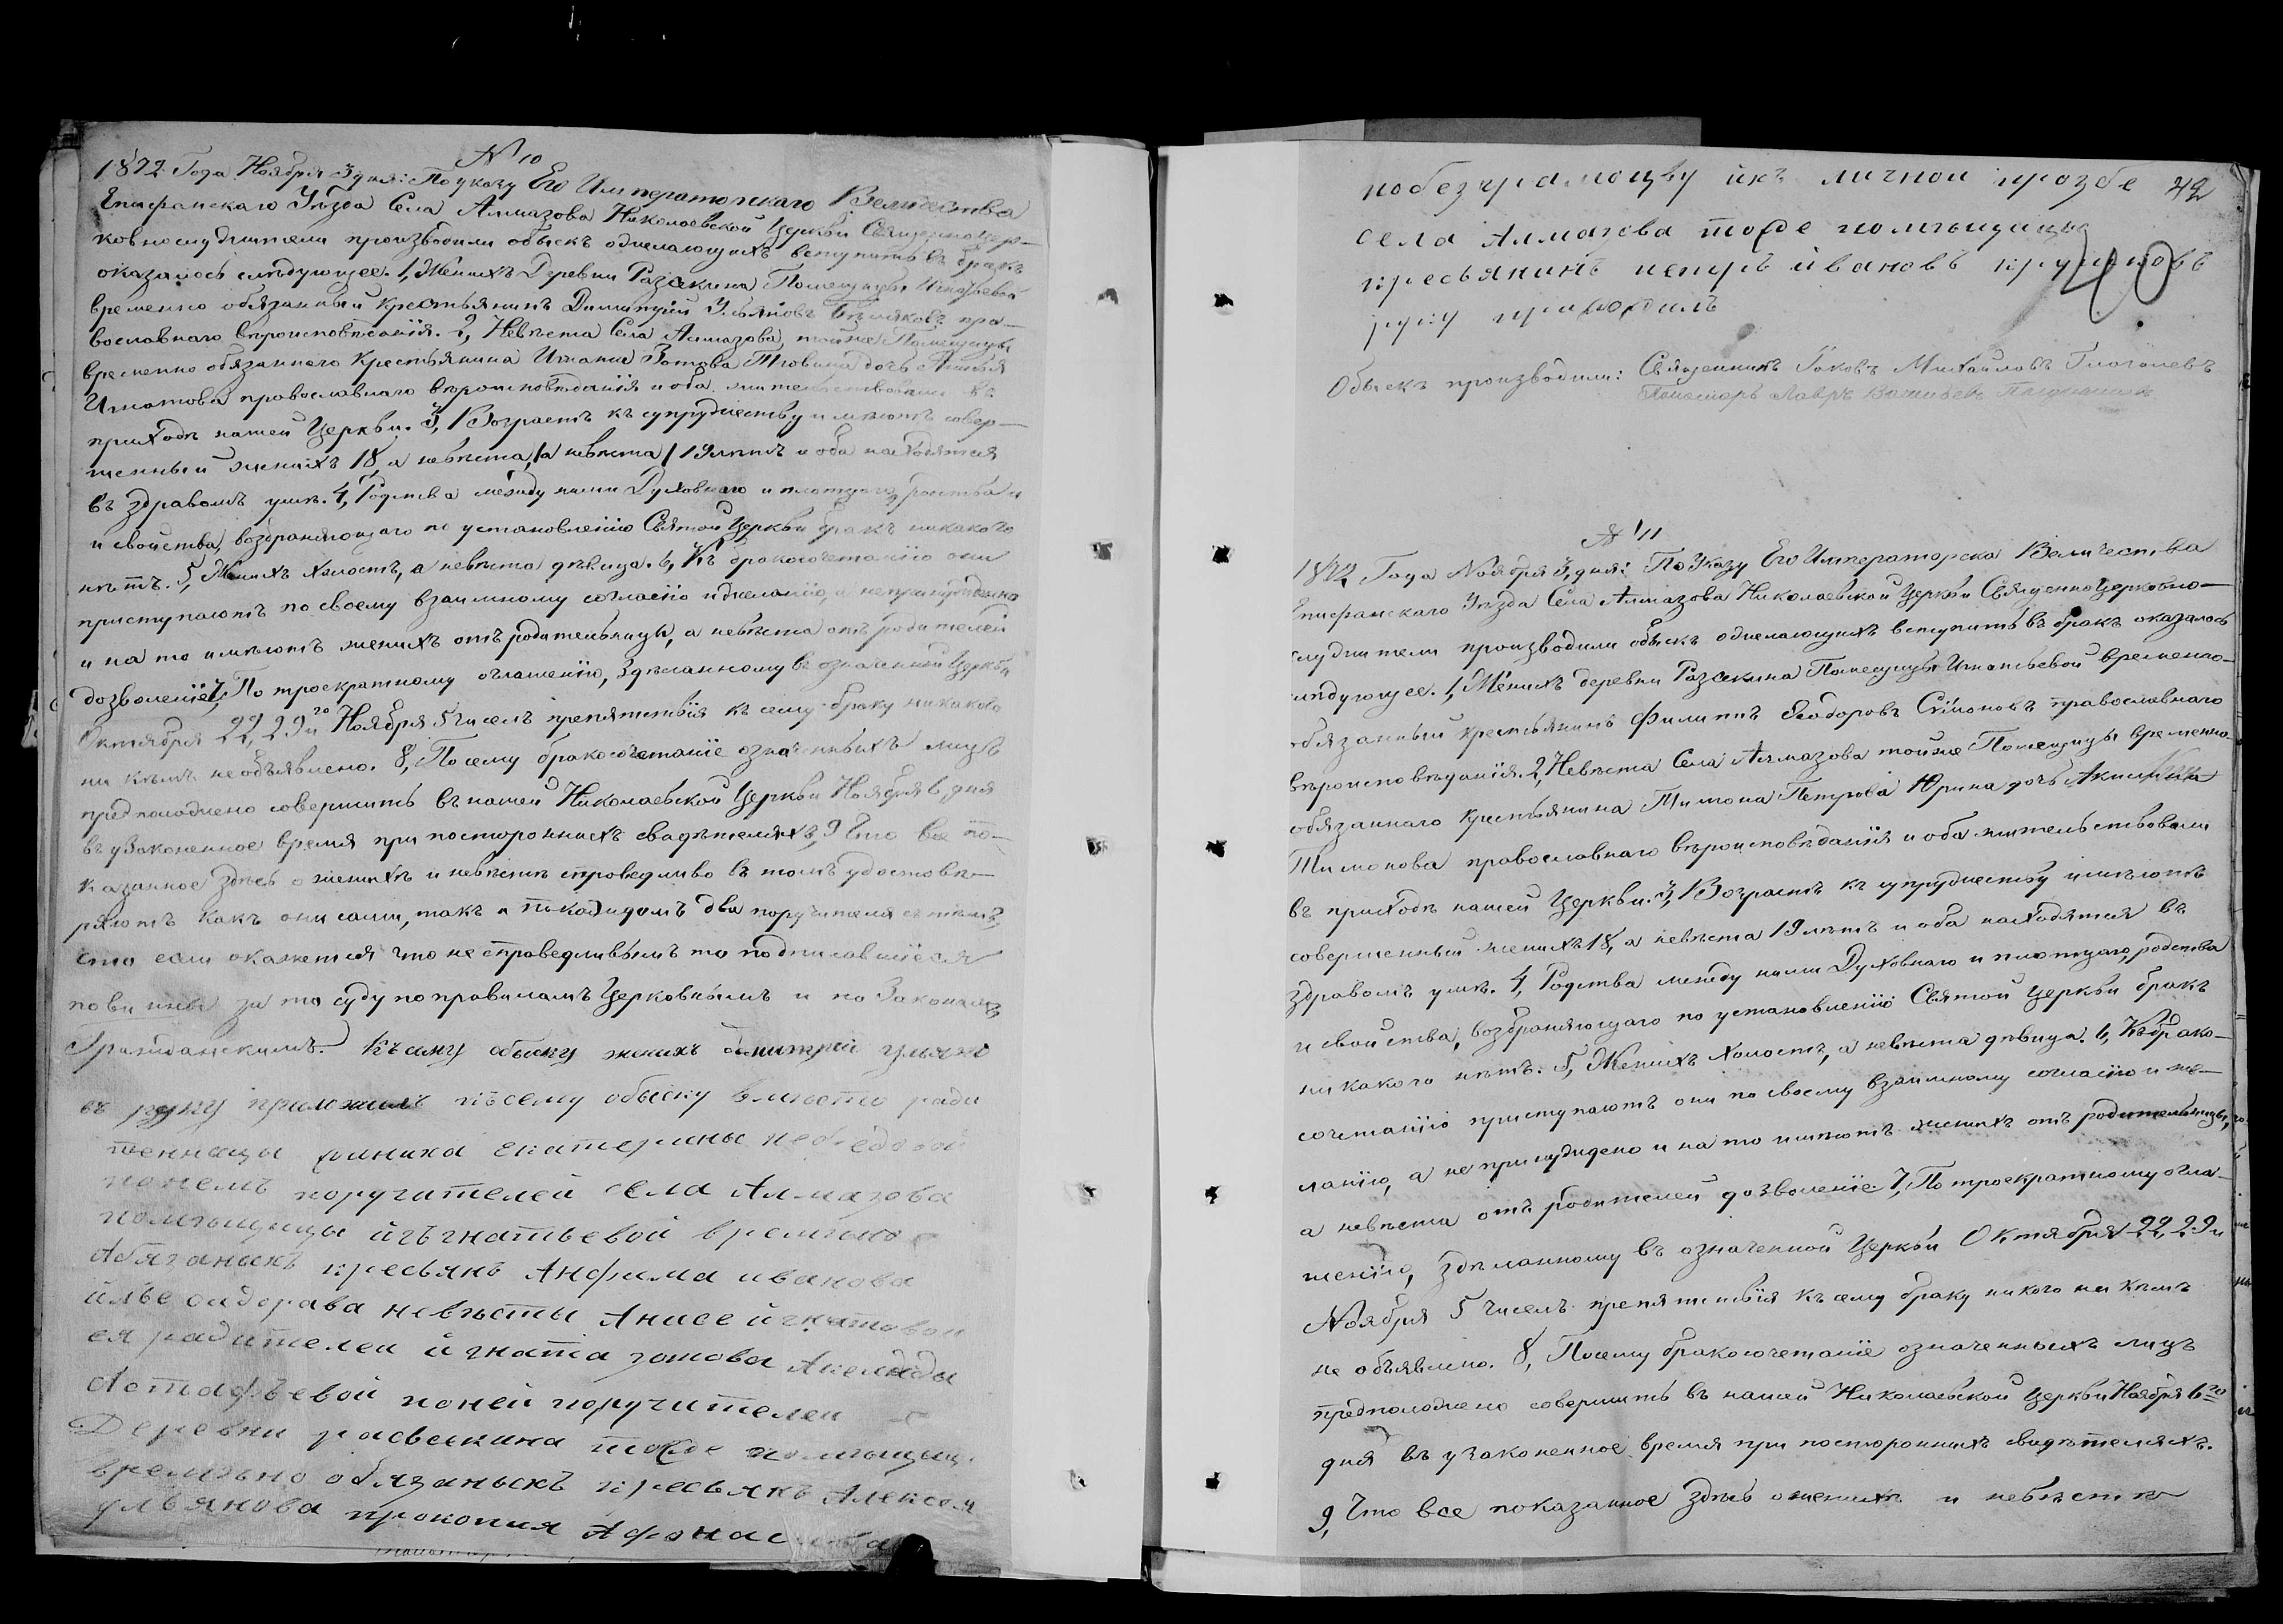 N 10
1872 Года Ноября 3 дня: По указу Его Императорскаго Величества
Епифанскаго Уѣзда Села Алмазова Николаевской Церкви Священноцер-
ковнослужители производили обыскъ о желающихъ вступить въ бракъ
оказалось слѣдующее. 1, Женихъ Деревни Помещицы Игнатьевой
временно обязанный крестьянинъ Димитрій Ульяновъ пра-
вославнаго вѣроисповѣданія. 2, Невѣста Села Алмазова, тойже Помещицы
временно обязаннаго крестьянина Игнатия Зотова дочь
Игнатова православнаго вѣроисповѣданія и оба жительствовали въ
приходѣ нашей Церкви. 3, Возрастъ къ супружеству имѣютъ совер-
шенный женихъ 18, а невѣста, /а невѣста/ 19 лѣтъ и оба находятся
въ здравомъ умѣ. 4, Родства между ними Духовнаго и плотскаго родства и
и свойства, возбраняющаго по установленію Святой Церкви бракъ никакого
нѣтъ. 5, Женихъ холостъ, а невѣста дѣвица. 6, Къ бракосочетанію они
приступаютъ по своему взаимному согласію и желанію, а не принужденно
и на то имѣютъ женихъ отъ родительницы, а невѣста отъ родителей
дозволеніе 7, По троекратному оглашенію, здѣланному въ означенной Церкви
Октября 22, 29 и Ноября 5 чиселъ препятствія къ сему браку никакого
ни кѣмъ необъявлено. 8, Посему бракосочетаніе означенныхъ лицъ
предположено совершить въ нашей Николаевской Церкви Ноября 6, дня
въ узаконенное время при постороннихъ свидѣтеляхъ, 9 Что все по-
казанное здѣсь о женихѣ и невѣстѣ справедливо въ томъ удостовѣ-
ряютъ какъ они сами, такъ и по каждомъ два поручителя съ тѣмъ,
что если окажется что не справедливымъ то подписавшіеся
повинны за то суду по правиламъ Церковнымъ и по Законамъ
Гражданскимъ. Къ сему обыску женихъ дмитрей ульяно
въ руку приложилъ къ сему обыску вместо роди
тельницы жениха екатерины
понемъ поручителей села Алмазова
помещицы игъгнатьевой временно
Абязаныхъ кресьянъ Анфима иванова
невѣсты игнатовой
ея радителей игната зотова
Астафьевой поней поручителей
Деревни тоже помещицы
временно обязаныхъ кресьянъ Алексея
ульянова прокопия Афонас
побезграмоцву ихъ личной прозбе 42
села Алмазова тоже помещицы
кресьянинъ петръ ивановъ
руку приложилъ
40
Обыскъ производили: Священникъ Іаковъ Михайловъ Глаголевъ
Пономарь Лавръ
N 11
1872 Года Ноября 3, дня: По Указу Его Императорска Величества
Епифанскаго Уѣзда Села Алмазова Николаевской Церкви Священноцерковно-
служители производили обыскъ о желающихъ вступить въ бракъ оказалось
слѣдующее. 1, Женихъ деревни Помещицы Игнатьевой временно-
обязанный крестьянинъ Филиппъ Ѳеодоровъ Симоновъ православнаго
вѣроисповѣданія. 2, Невѣста Села Алмазова тойже Помещицы временно-
обязаннаго крестьянина Тимона Петрова Юрина дочь Акилина
Тимонова православнаго вѣроисповѣданія и оба жительствовали
въ приходѣ нашей Церкви. 3, Возрастъ къ супружеству имѣютъ
совершенный женихъ 18, а невѣста 19 лѣтъ и оба находятся въ
здравомъ умѣ. 4, Родства между ними Духовнаго и плотскаго, родства
и свойства, возбраняющаго по установленію Святой Церкви бракъ
никакого нѣтъ. 5, Женихъ холостъ, а невѣста дѣвица. 6, Къ брако-
сочетанію приступаютъ они по своему взаимному согласію и же-
ланію, а не принуждено и на то имѣютъ женихъ отъ родительницы,
а невѣста отъ родителей дозволеніе 7, По троекратному огла-
шенію, здѣланному въ означенной Церкви Октября 22, 29 и
Ноября 5 чиселъ препятствія къ сему браку никого ни кѣмъ
не объявлено. 8, Посему бракосочетаніе означенныхъ лицъ
предположено совершить въ нашей Николаевской Церкви Ноября 6го
дня въ узаконенное время при постороннихъ свидѣтеляхъ.
9, Что все показанное здѣсь о женихѣ и невѣстѣ